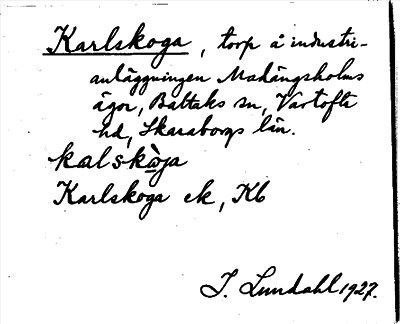 Karlskoga, torp å industri-
anläggningen Madängsholms
ägor, Baltaks sn, Vartofta
hd, Skaraborgs län.
kalskòja
Karlskoga ek, Kb
I. Lundahl 1927.